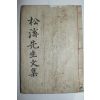 松濤先生文集